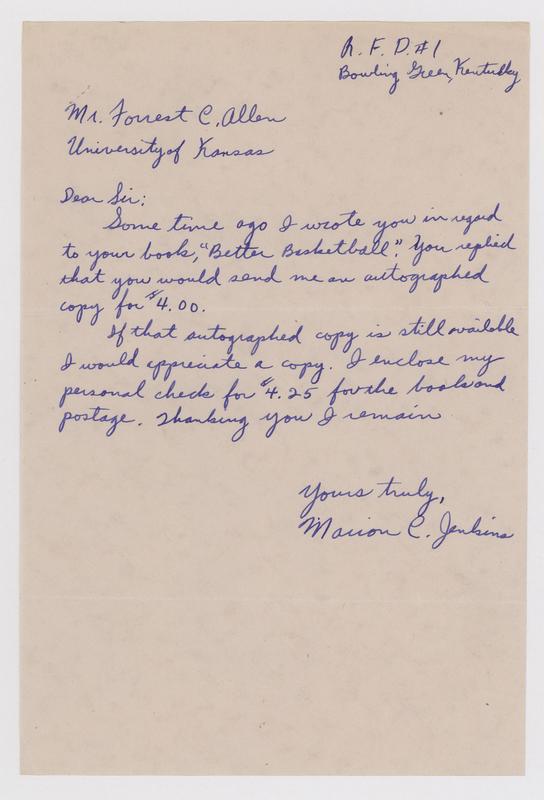 R. F. D. #1
Bowling Green, Kentucky
Mr. Forrest C. Allen
University of Kansas
Dear Sir:
Some time ago I wrote you in regard
to your book, "Better Basketball". You replied
that you would send me an autographed
copy for $4.00.
If that autographed copy is still available
I would appreciate a copy. I enclose my
personal check for $4.25 for the book and
postage. Thanking you I remain
Yours truly,
Marion C. Jenkins